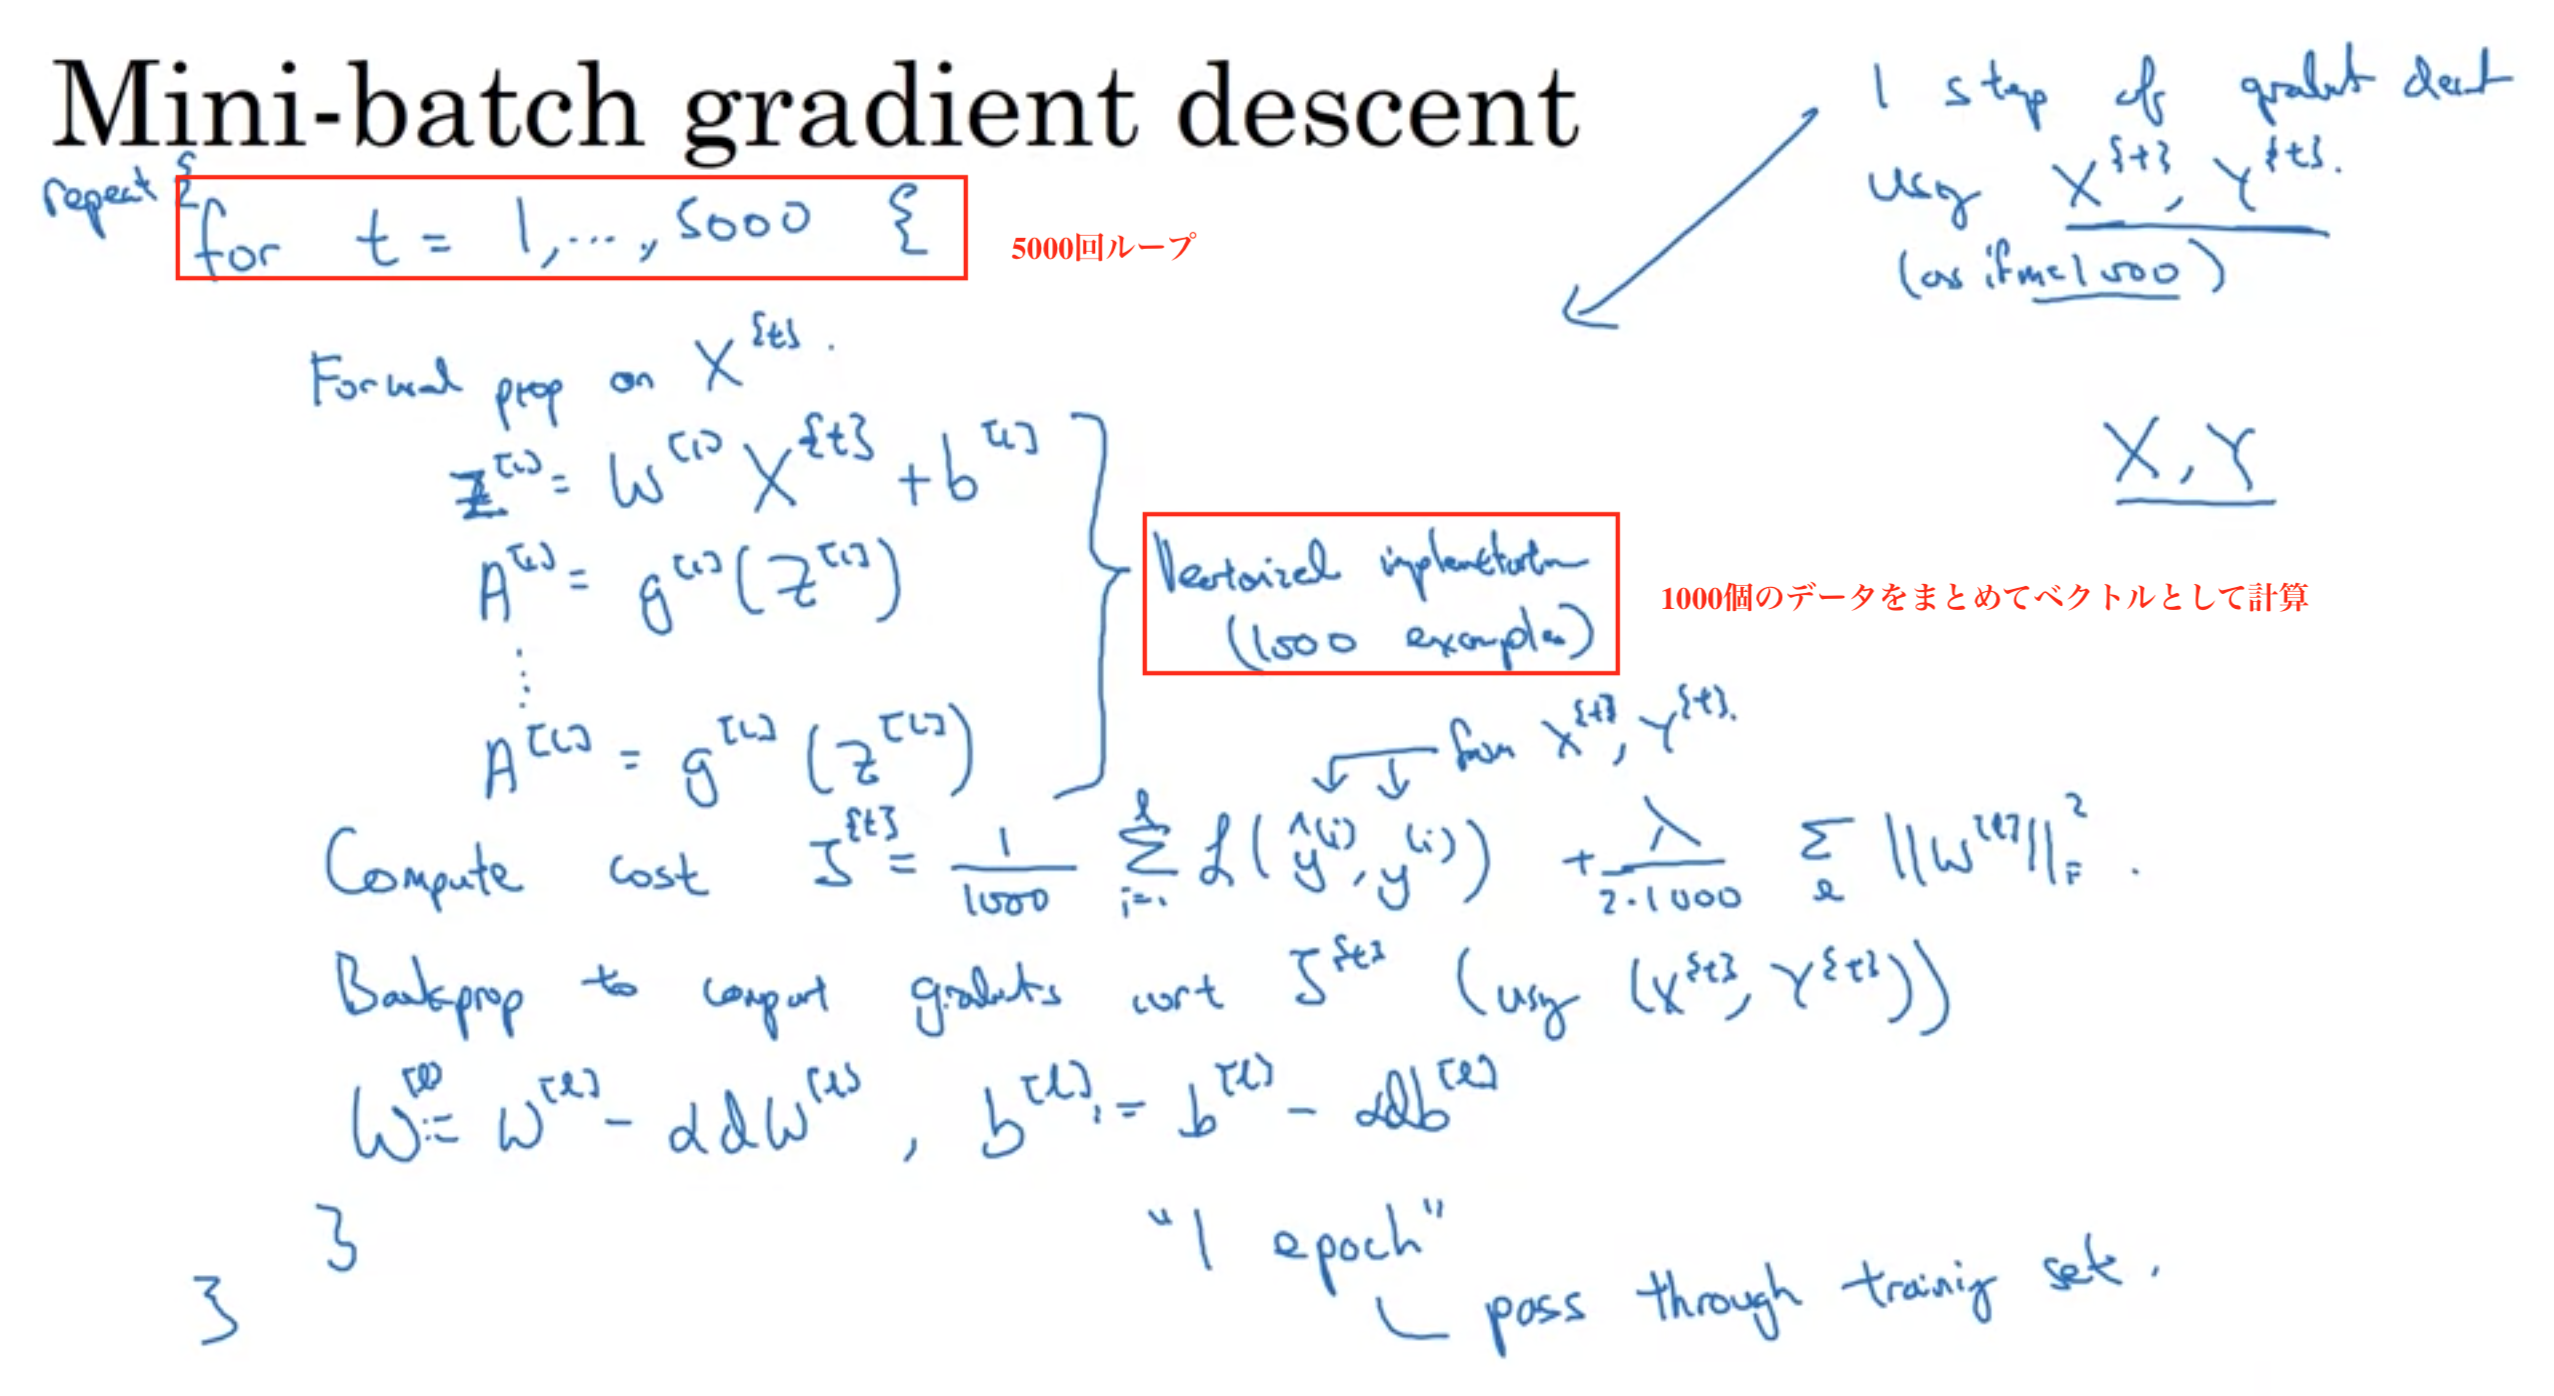 Mini-batch gradient descent
1 step of gradient descent
using X^{t}, Y^{t}.
(as if m=1000)
repeat {
for t = 1,...,5000 {
5000回ループ
Forward prop on X^{t}.
X, Y
Z^[1] = W^[1] X^{t} + b^[1]
A^[1] = g^[1](Z^[1])
Vectorized implementation
(1000 examples)
1000個のデータをまとめてベクトルとして計算
⋮
A^[L] = g^[L](Z^[L])
from X^{t}, Y^{t}.
Compute cost J^{t} = 1/1000 Σ_{i=1}^{l} L(ŷ^(i), y^(i)) + λ/(2·1000) Σ_l ||W^[l]||_F^2.
Backprop to compute gradients wrt J^{t} (using (X^{t}, Y^{t}))
W^[l] := W^[l] - αdW^[l], b^[l] := b^[l] - αdb^[l]
}
}
"1 epoch"
pass through training set.